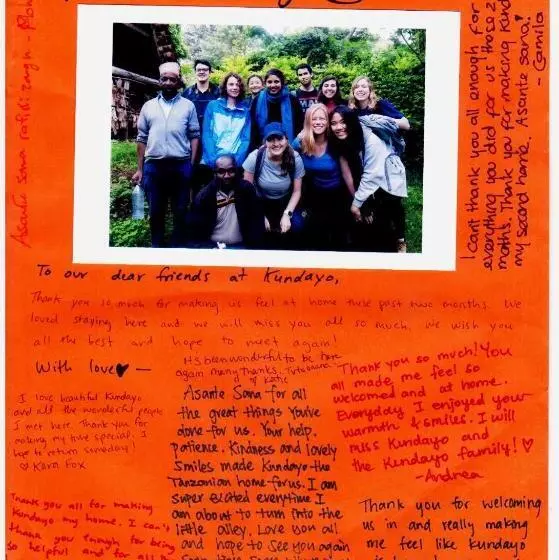 Asante sana rafiki zangu
I can't thank you all enough for
everything you did for us those 2
months. Thank you for making Kund
my second home. Asante sana!
- Camila
To our dear friends at Kundayo,
Thank you so much for making us feel at home these past two months. We
loved staying here and we will miss you all so much. We wish you
all the best and hope to meet again!
With love♥ —
It's been wonderful to be here
again many thanks.
♡ Katie
I love beautiful Kundayo
and all the wonderful people
I met here. Thank you for
making my time special. I
hope to return someday!
♡ Kara Fox
Asante Sana for all
the great things You've
done for us. Your help,
patience, Kindness and lovely
Smiles made Kundayo the
Tanzanian home for us. I am
super excited everytime I
am about to turn into the
little alley. Love you all
and hope to see you again
Thank you so much! You
all made me feel so
welcomed and at home.
Everyday I enjoyed your
warmth & smiles. I will
miss Kundayo and
the Kundayo family! ♡
-Andrea
Thank you all for making
Kundayo my home. I can't
thank you enough for being
so helpful and for all
Thank you for welcoming
us in and really making
me feel like kundayo